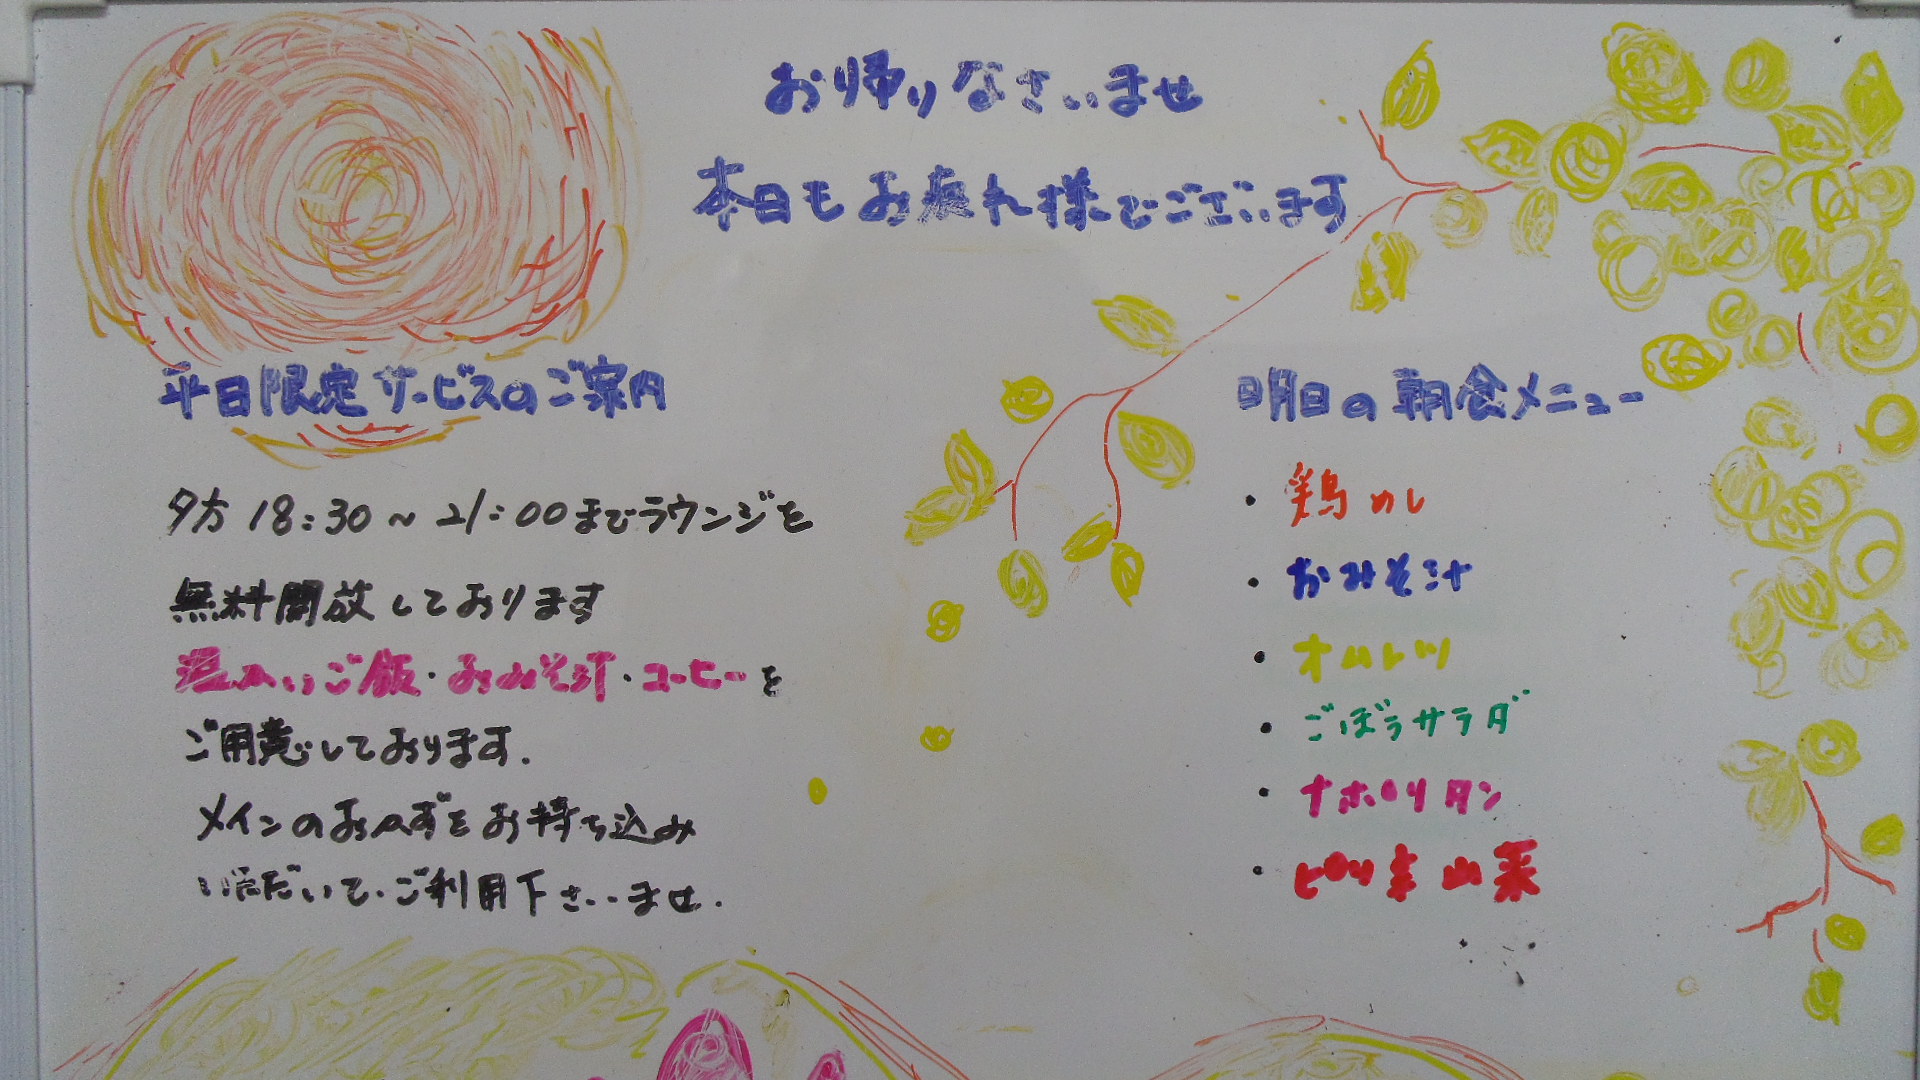 お帰りなさいませ
本日もお疲れ様でございます
平日限定サービスのご案内
夕方18:30~21:00までラウンジを
無料開放しております
温かいご飯・おみそ汁・コーヒーを
ご用意しております.
メインのおかずをお持ち込み
いただいて、ご利用下さいませ.
明日の朝食メニュー
・鶏めし
・おみそ汁
・オムレツ
・ごぼうサラダ
・ナポリタン
・ピリ辛山菜